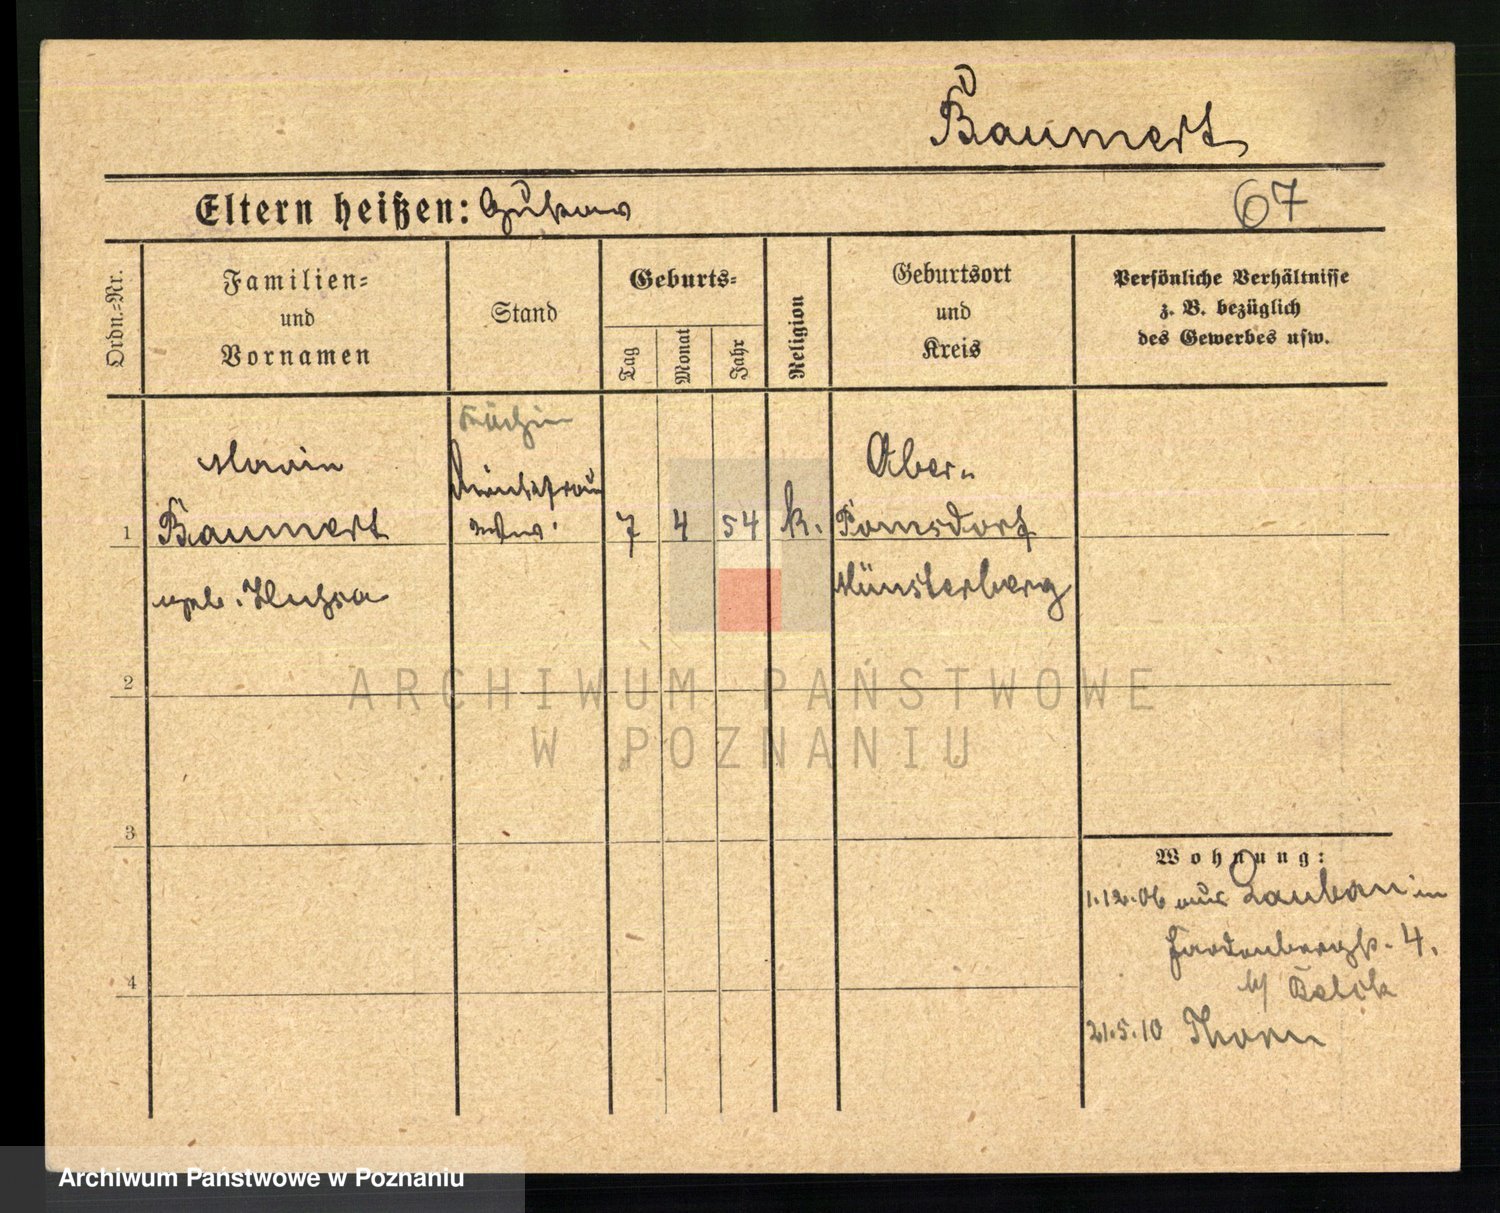 Baumert
Eltern heißen:
67
Ordn.=Nr.
Familien=
und
Vornamen
Stand
Geburts=
Tag
Monat
Jahr
Religion
Geburtsort
und
Kreis
Persönliche Verhältnisse
z. B. bezüglich
des Gewerbes usw.
Köchin
Marie
Ober-
1 Baumert 7 4 54 k. Pomsdorf
geb.
Münsterberg
2
ARCHIWUM PAŃSTWOWE
W POZNANIU
3
Wohnung:
1.12.06 aus Lauban in
4.
4
21.5.10 Thorn
Archiwum Państwowe w Poznaniu